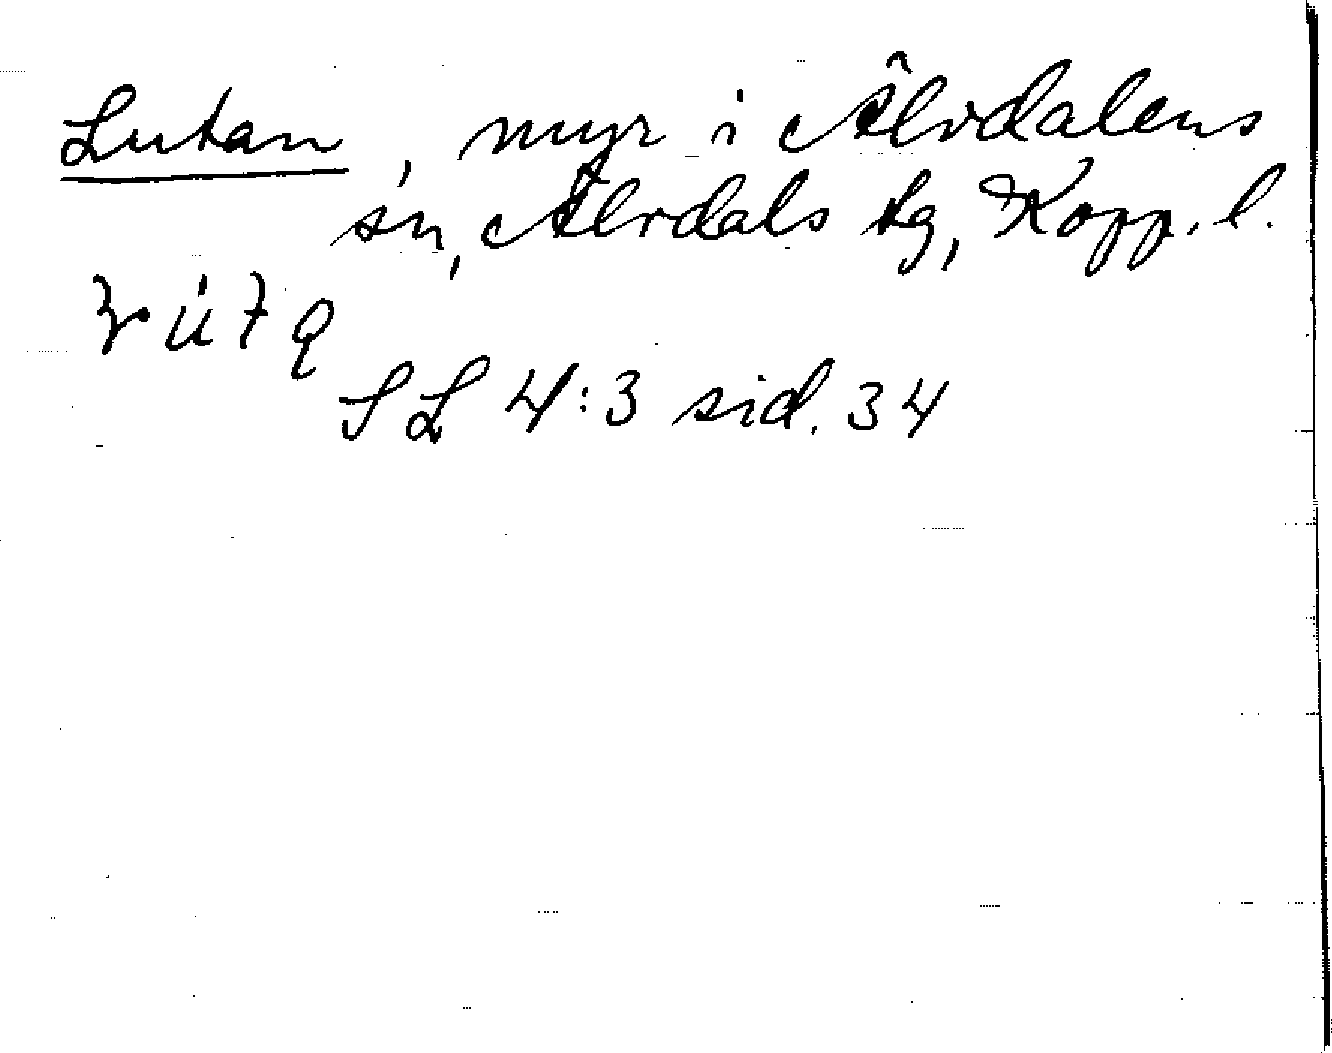 Lutan, myr i Älvdalens
sn, Älvdals tg, Kopp. l.
SL 4:3 sid. 34